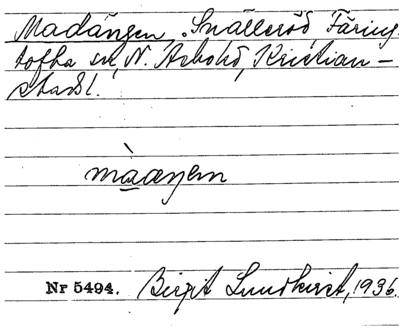 Madängen, Snälleröd, Färing-
tofta sn, N. Åsbohd, Kristian-
stads l.
màaŋen
Nr 5494. Birgit Lundkvist, 1936.